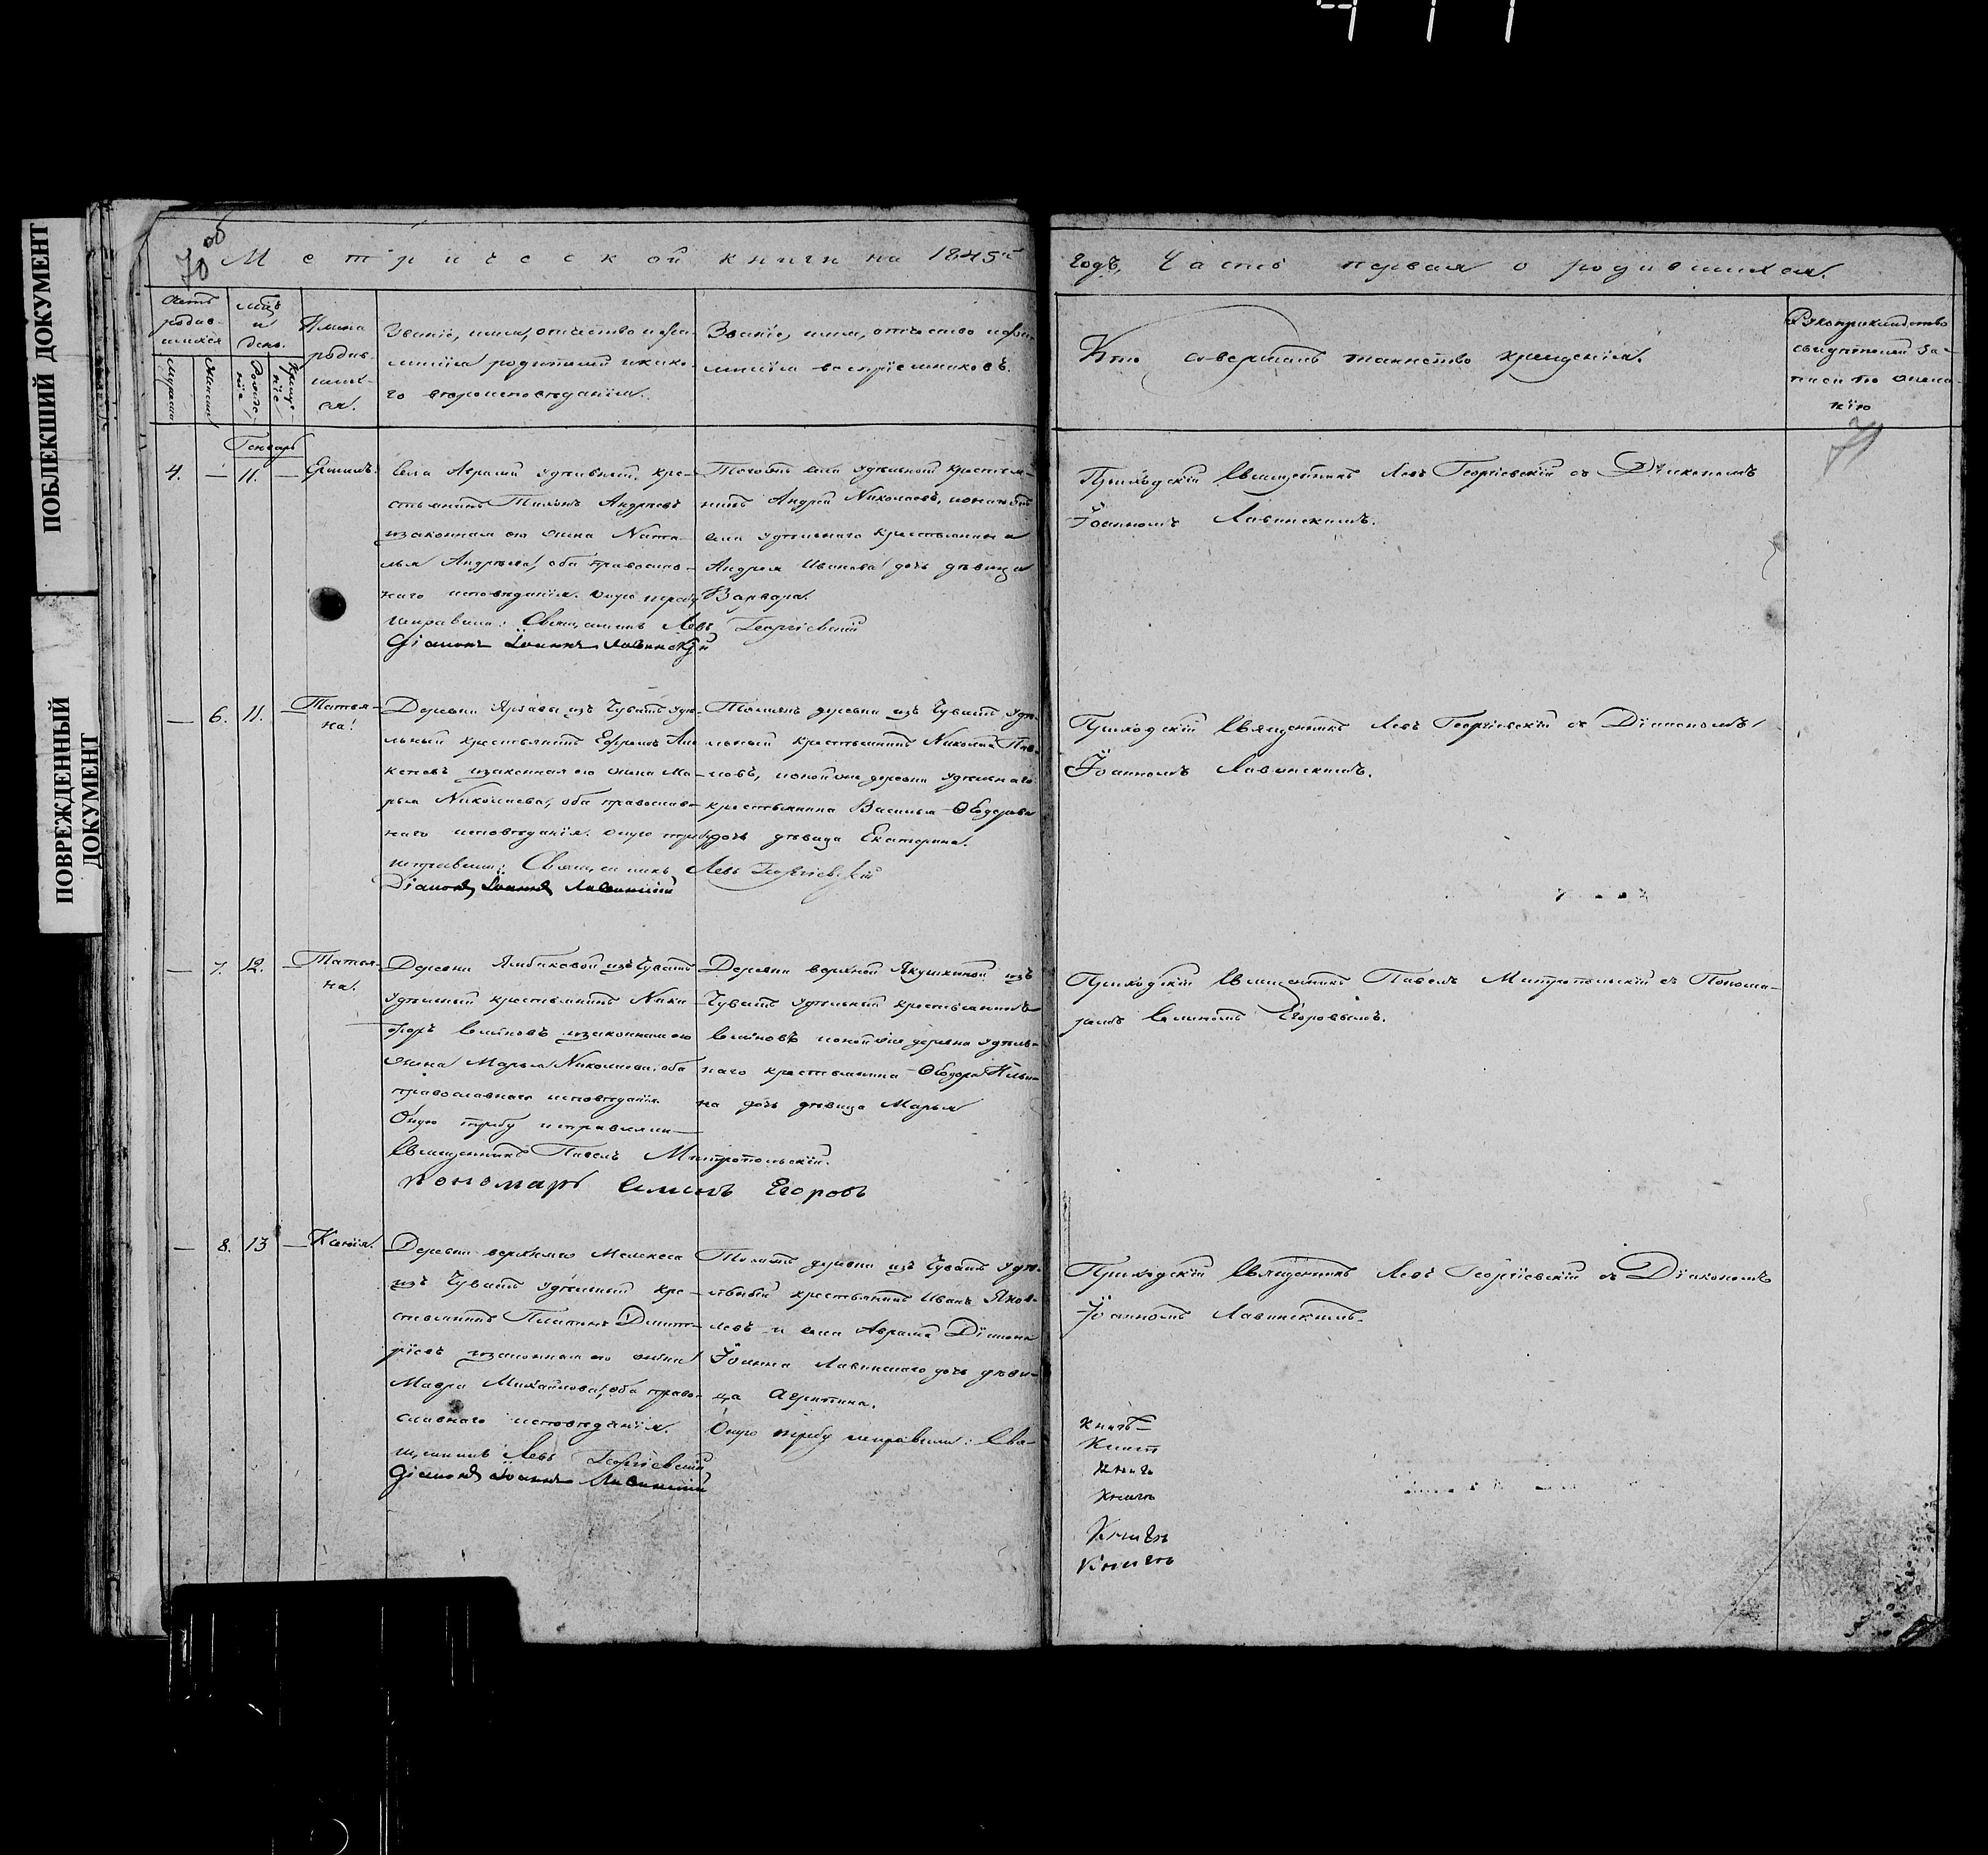 ПОБЛЕКШИЙ ДОКУМЕНТ
ПОВРЕЖДЕННЫЙ
ДОКУМЕНТ
70 об
Метрической книги на 1845й
годъ, Часть первая о родившихся.
Счетъ
родив-
шихся
Мужеска
Женска
мѣс.
и
день.
Рожде-
нiе
Креще-
нiе
Имена
родив-
ших-
ся.
Званiе, имя, отчество и фа-
милiя родителей и како-
го вѣроисповѣданiя.
Званiе, имя, отчество и фа-
милiя воспрiемниковъ.
Кто совершалъ таинство крещенiя.
Рукоприкладство
свидѣтелей за-
писи по жела-
нiю
71
Генварь
4. — 11. —
Села Аврамiй удѣльный кре-
стьянинъ Тихонъ Андреевъ
и законная его жена Ната-
лья Андреева, оба православ-
наго исповѣданiя. Оную требу
исправили: Священникъ Левъ Георгiевскiй
Дiаконъ Iоаннъ Лавинскiй
Тогожъ села удѣльный крестья-
нинъ Андрей Николаевъ, и онагожъ
села удѣльнаго крестьянина
Андрея Иванова дочь дѣвица
Варвара.
Приходскiй Священникъ Левъ Георгiевскiй съ Дiакономъ
Iоанномъ Лавинскимъ.
— 6. 11. — Татья-
на.
Деревни из Чувашъ удѣ-
льный крестьянинъ Ефремъ
и законная его жена Ма-
рья Николаева, оба православ-
наго исповѣданiя. Оную требу
исправили: Священникъ Левъ Георгiевскiй
Дiаконъ Iоаннъ Лавинскiй
Тояжъ деревни изъ Чувашъ удѣ-
льный крестьянинъ Николай Пав-
ловъ, и онойже деревни удѣльнаго
крестьянина Василья Ѳеодорова
дочь дѣвица Екатерина.
Приходскiй Священникъ Левъ Георгiевскiй съ Дiакономъ
Iоанномъ Лавинскимъ.
— 7. 12. — Татья-
на.
Деревни Ямбиковой изъ Чувашъ
удѣльный крестьянинъ Ники-
форъ Семеновъ и законная его
жена Марья Николаева, оба
православнаго исповѣданiя
Оную требу исправляли
Священникъ Павелъ Митропольскiй.
Пономарь Семенъ Егоровъ
Деревни верхней Якушкиной изъ
Чувашъ удѣльный крестьянинъ
Семеновъ и онойже деревни удѣль-
наго крестьянина Ѳеодора Ильи-
на дочь дѣвица Марья
Приходскiй Священникъ Павелъ Митропольскiй съ Понома-
ремъ Семеномъ Егоровымъ.
— 8. 13 — Ксенiя.
Деревни верхняго Мелекеса
изъ Чувашъ удѣльный кре-
стьянинъ Платонъ Дмит-
рiевъ и законная его жена
Мавра Михайлова, оба право-
славнаго исповѣданiя.
Тояжъ деревни изъ Чувашъ удѣ-
льный крестьянинъ Иванъ Яков-
левъ и села Аврамiй Дiакона
Iоанна Лавинскаго дочь дѣви-
ца Агрипина.
Оную требу исправили: Свя-
щенникъ Левъ Георгiевскiй
Дiаконъ Iоаннъ Лавинскiй
Приходскiй Священникъ Левъ Георгiевскiй съ Дiакономъ
Iоанномъ Лавинскимъ.